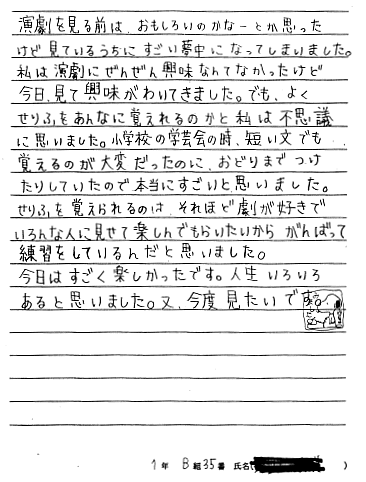 演劇を見る前は、おもしろいのかなーとか思った
けど見ているうちにすごい夢中になってしまいました。
私は演劇にぜんぜん興味なんてなかったけど
今日、見て興味がわいてきました。でも、よく
せりふをあんなに覚えれるのかと私は不思議
に思いました。小学校の学芸会の時、短い文でも
覚えるのが大変だったのに、おどりまでつけ
たりしていたので本当にすごいと思いました。
せりふを覚えられるのは、それほど劇が好きで
いろんな人に見せて楽しんでもらいたいからがんばって
練習をしているんだと思いました。
今日はすごく楽しかったです。人生いろいろ
あると思いました。又、今度見たいです。
1年 B組35番 氏名( )